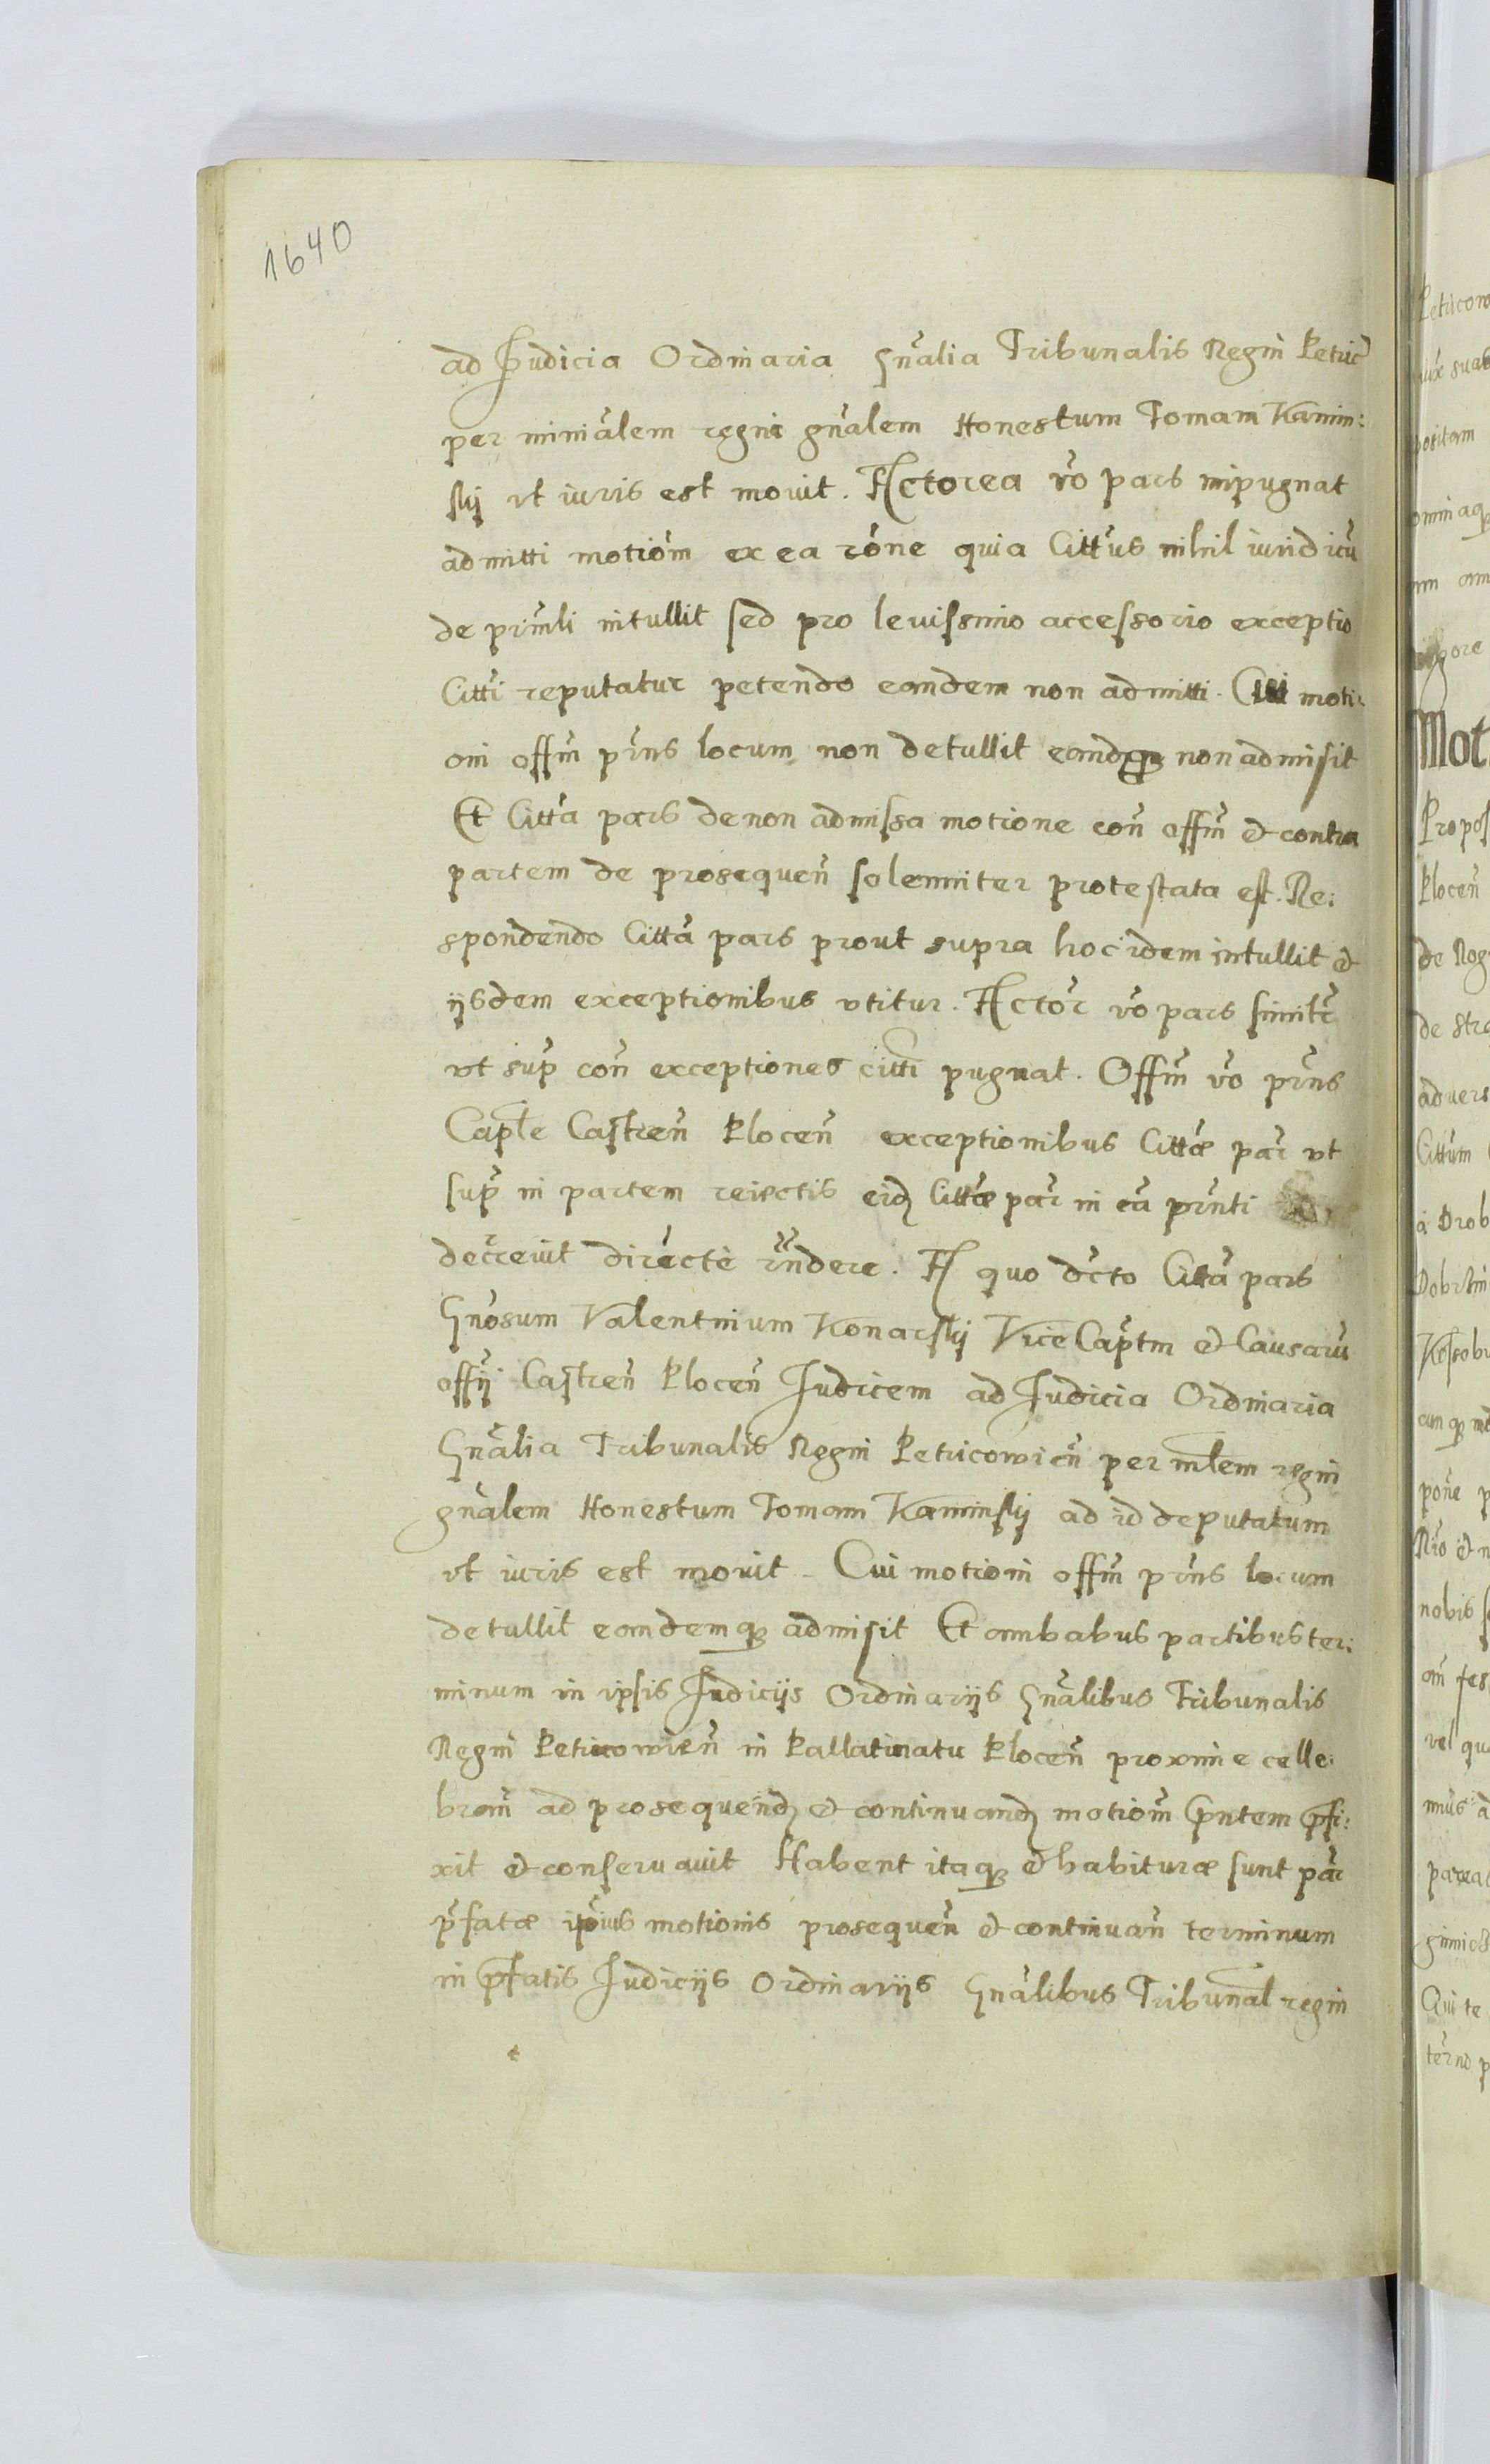 1640
ad Judicia Ordinaria Gnalia Tribunalis Regni Petric
per minialem regni gnalem Honestum Tomam Kamin:
skj ut iuris est mouit. Actorea vo pars inpugnat
admitti motiom ex ea rone quia Cittus nihil iuridicu
de prinli intullit sed pro leuissimo accessorio exceptio
Citti reputatur petendo eandem non admitti. Cui moti:
oni offm prns locum non detullit eandemq non admisit
Et Citta pars de non admissa motione con offm et contra
partem de prosequen solenniter protestata est. Re:
spondendo Citta pars prout supra hoc idem intullit et
ijsdem exceptionibus utitur. Actor vo pars similr
ut sup con exceptiones citti pugnat. Offm vo prns
Caple Castren Plocen exceptionibus Cittæ par ut
sup in partem reiectis eid Cittæ par in ca prnti
decreuit directe rndere. A quo dcto Citta pars
Gnosum Valentinum Konarskj Vice Captm et Causaru
offij Castren Plocen Judicem ad Judicia Ordinaria
Gnalia Tribunalis Regni Petricowien per mlem regni
gnalem Honestum Tomam Kaminskj ad id deputatum
ut iuris est mouit. Cui motioni offm prns locum
detullit eandemq admisit Et ambabus partibus ter:
minum in ipsis Judicijs Ordinarijs Gnalibus Tribunalis
Regni Petricowien in Pallatinatu Plocen proxime celle:
bram ad prosequend et continuand motiom pntem pfi:
xit et conseruauit Habent itaq et habituræ sunt par
pfatæ ipius motionis prosequen et continuan terminum
in pfatis Judicijs Ordinarijs Gnalibus Tribunal regni
Mot
Propos
Plocen
de Rog
advers
Cittum
à Drob